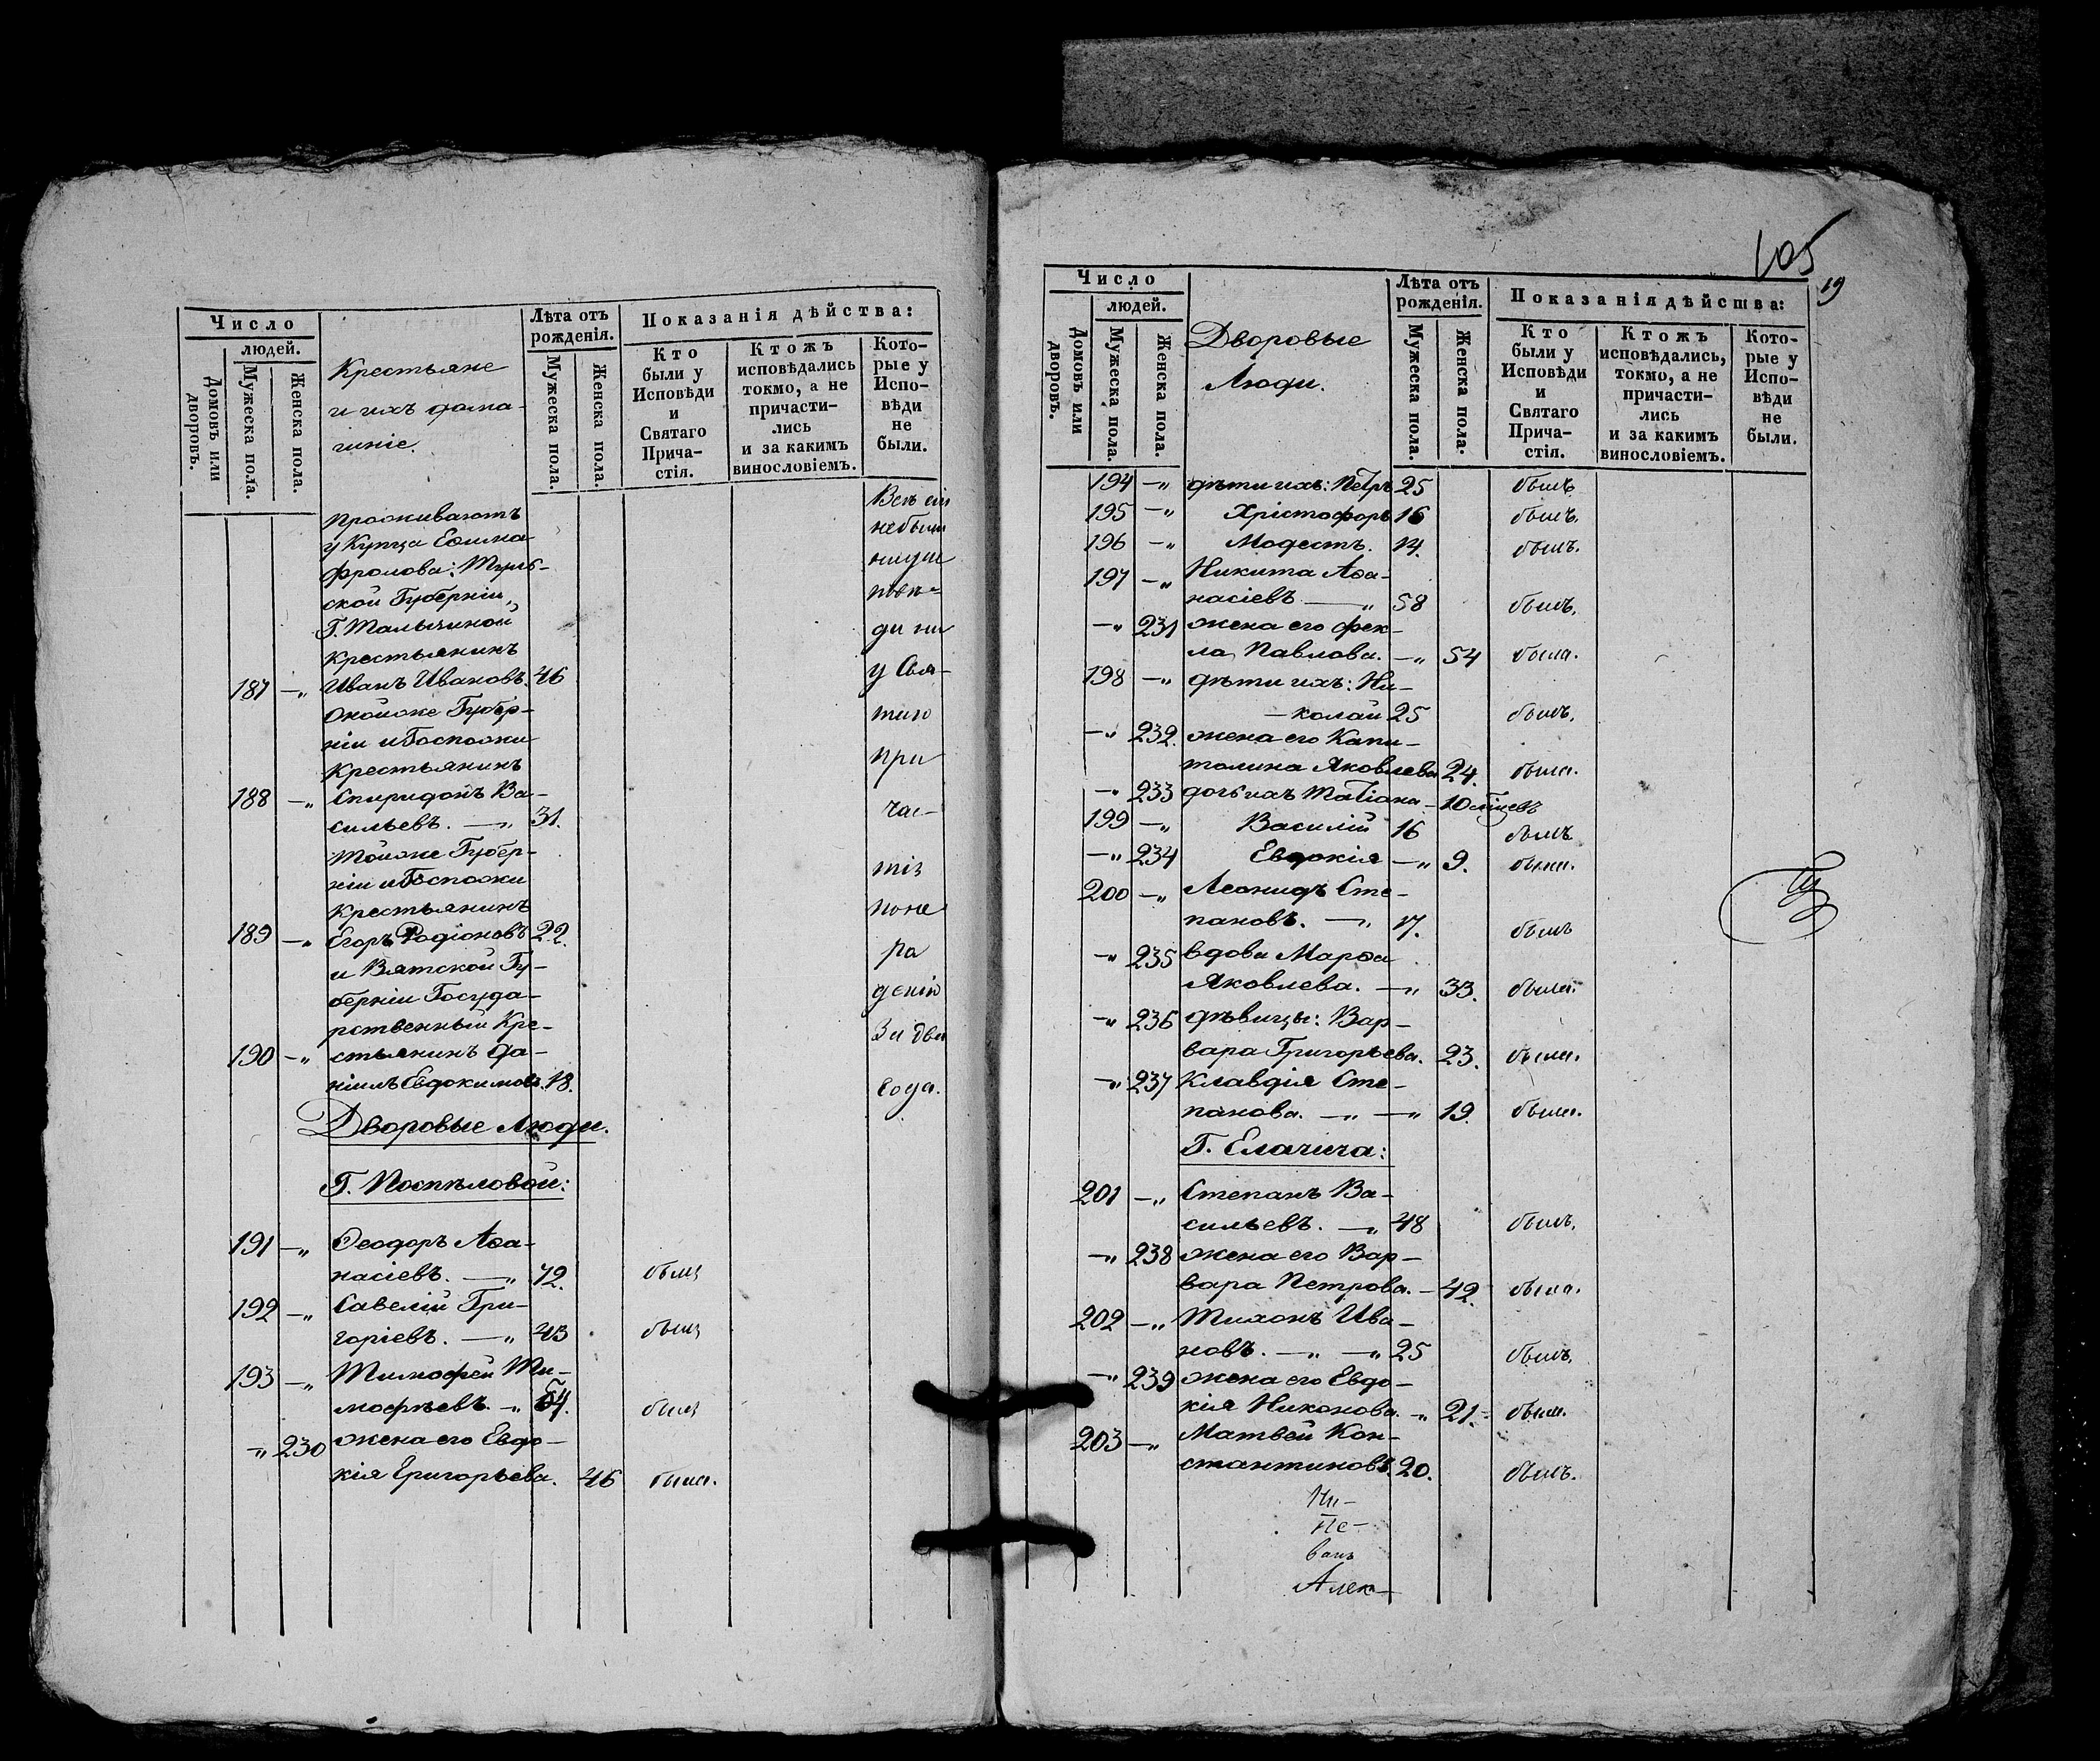 Число
людей.
Домовъ или дворовъ.
Мужеска пола.
Женска пола.
Крестьяне
и ихъ дома-
шніе.
Лѣта отъ
рожденія.
Мужеска пола.
Женска пола.
Показанія дѣйства:
Кто
были у
Исповѣди
и
Святаго
Прича-
стія.
Ктожъ
исповѣдались
токмо, а не
причасти-
лись
и за какимъ
винословіемъ.
Кото-
рые у
Испо-
вѣди
не
были.
Проживаютъ
у Купца Ефима
Фролова: Туль-
ской Губерніи,
Г.
Крестьянинъ
187 -„ Иванъ Ивановъ. 46
Онойже Губер-
ніи и Госпожи
Крестьянинъ
188 -„ Спиридонъ Ва-
сильевъ. -„ 31.
Тойже Губер-
ніи и Госпожи
Крестьянинъ
189 -„ Егоръ Родіоновъ 22.
и Вятской Гу-
берніи Госуда-
рственный Кре-
190 -„ стьянинъ Да-
ніилъ Евдокимовъ. 18.
Всѣ сіи
небыли
ни у Свя-
таго
при
час-
тія
по не
ра
денію
За два
года.
Дворовые Люди.
Г. Поспѣловой:
191 -„ Ѳеодоръ Аѳа-
насіевъ. -„ 72. былъ
192 -„ Савелій Гри-
горіевъ. -„ 43 былъ
193 -„ Тимофей Ти-
мофѣевъ. -„ 54. былъ
-„ 230 жена его Евдо-
кія Григорьева. 46 была.
105
19
Число
людей.
Домовъ или дворовъ.
Мужеска пола.
Женска пола.
Дворовые
Люди.
Лѣта отъ
рожденія.
Мужеска пола.
Женска пола.
Показанія дѣйства:
Кто
были у
Исповѣди
и
Святаго
Прича-
стія.
Ктожъ
исповѣдались,
токмо, а не
причасти-
лись
и за какимъ
винословіемъ.
Кото-
рые у
Испо-
вѣди
не
были.
194 -„ дѣти ихъ: Петръ 25 былъ
195 -„ Хрістофоръ 16 былъ.
196 -„ Модестъ. 14. былъ.
197 -„ Никита Аѳа-
насіевъ -„ 58 былъ.
-„ 231 жена его Фек-
ла Павлова. -„ 54 была.
198 -„ дѣти ихъ: Ни-
-колай 25 былъ.
-„ 232. жена его Капи-
толина Яковлева 24. была.
-„ 233 дочь ихъ Татіана -10
199 -„ Василій 16 былъ
-„ 234 Евдокія -„ 9. была.
200 -„ Леонидъ Сте-
пановъ. -„ 17. былъ
-„ 235 вдова Марѳа
Яковлева. -„ 33. была.
-„ 236 дѣвицы: Вар-
вара Григорьева. 23. была.
-„ 237 Клавдія Сте-
панова. -„ -„ 19. была.
Г. Елачича:
201 -„ Степанъ Ва-
сильевъ. -„ 48 былъ.
-„ 238 жена его Вар-
вара Петрова. - 42. была.
202 -„ Тихонъ Ива-
новъ. -„ -„ 25 былъ.
-„ 239 жена его Евдо-
кія Никонова. -„ 21. была.
203 -„ Матвей Кон-
стантиновъ. 20. былъ.
Ни-
Пе-
ванъ
Алек-